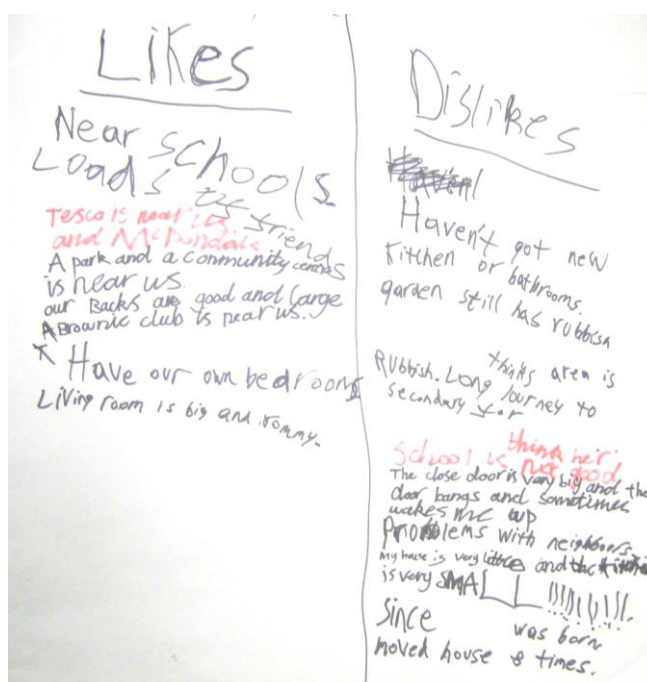 Likes
Near schools
Loads of friends
Tesco is near us
and McDondals
A park and a conmunity centre
is near us.
our Backs are good and large
A Brownie club is near us.
Have our own bedrooms
Living room is big and rommy.
Dislikes
Haven't got new
kitchen or bathrooms.
garden still has rubbish
thinks area is
Rubbish. Long journey to
secondary
school is not good
The close door is very big and the
door bangs and sometimes
wakes me up
Problems with neighboors.
My house is very little and the kitchen
is very SMALL !!!!!!!!.
Since was born
moved house 8 times.